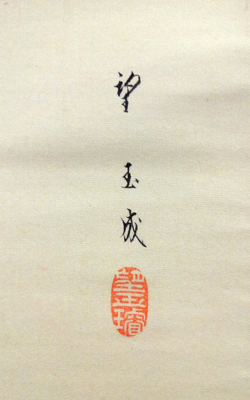 望玉成